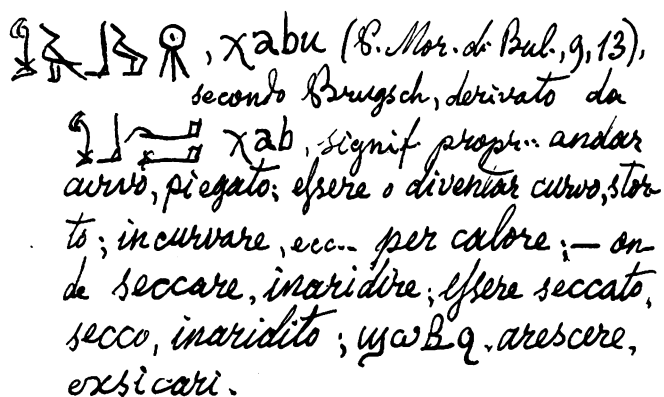 , χabu (P. Mor. di Bul., 9, 13),
secondo Brugsch, derivato da
χab, signif. propr.. andar
curvo, piegato; essere o diventar curvo, stor-
to; incurvare, ecc... per calore; — on
de seccare, inaridire; essere seccato,
secco, inaridito; ϣωⲃϥ. arescere,
exsicari.